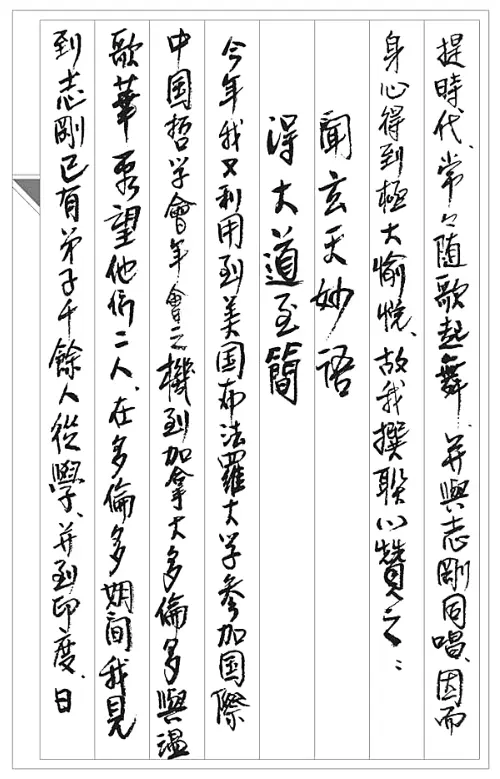 提時代、常々随歌起舞、并與志剛同唱、因而
身心得到極大愉悦、故我撰聯以贊之：
聞玄天妙語
得大道至簡
今年我又利用到美国布法羅大学参加国際
中国哲学會年會之機到加拿大多倫多與温
歌華看望他们二人、在多倫多期間我見
到志剛已有弟子千餘人從學、并到印度、日